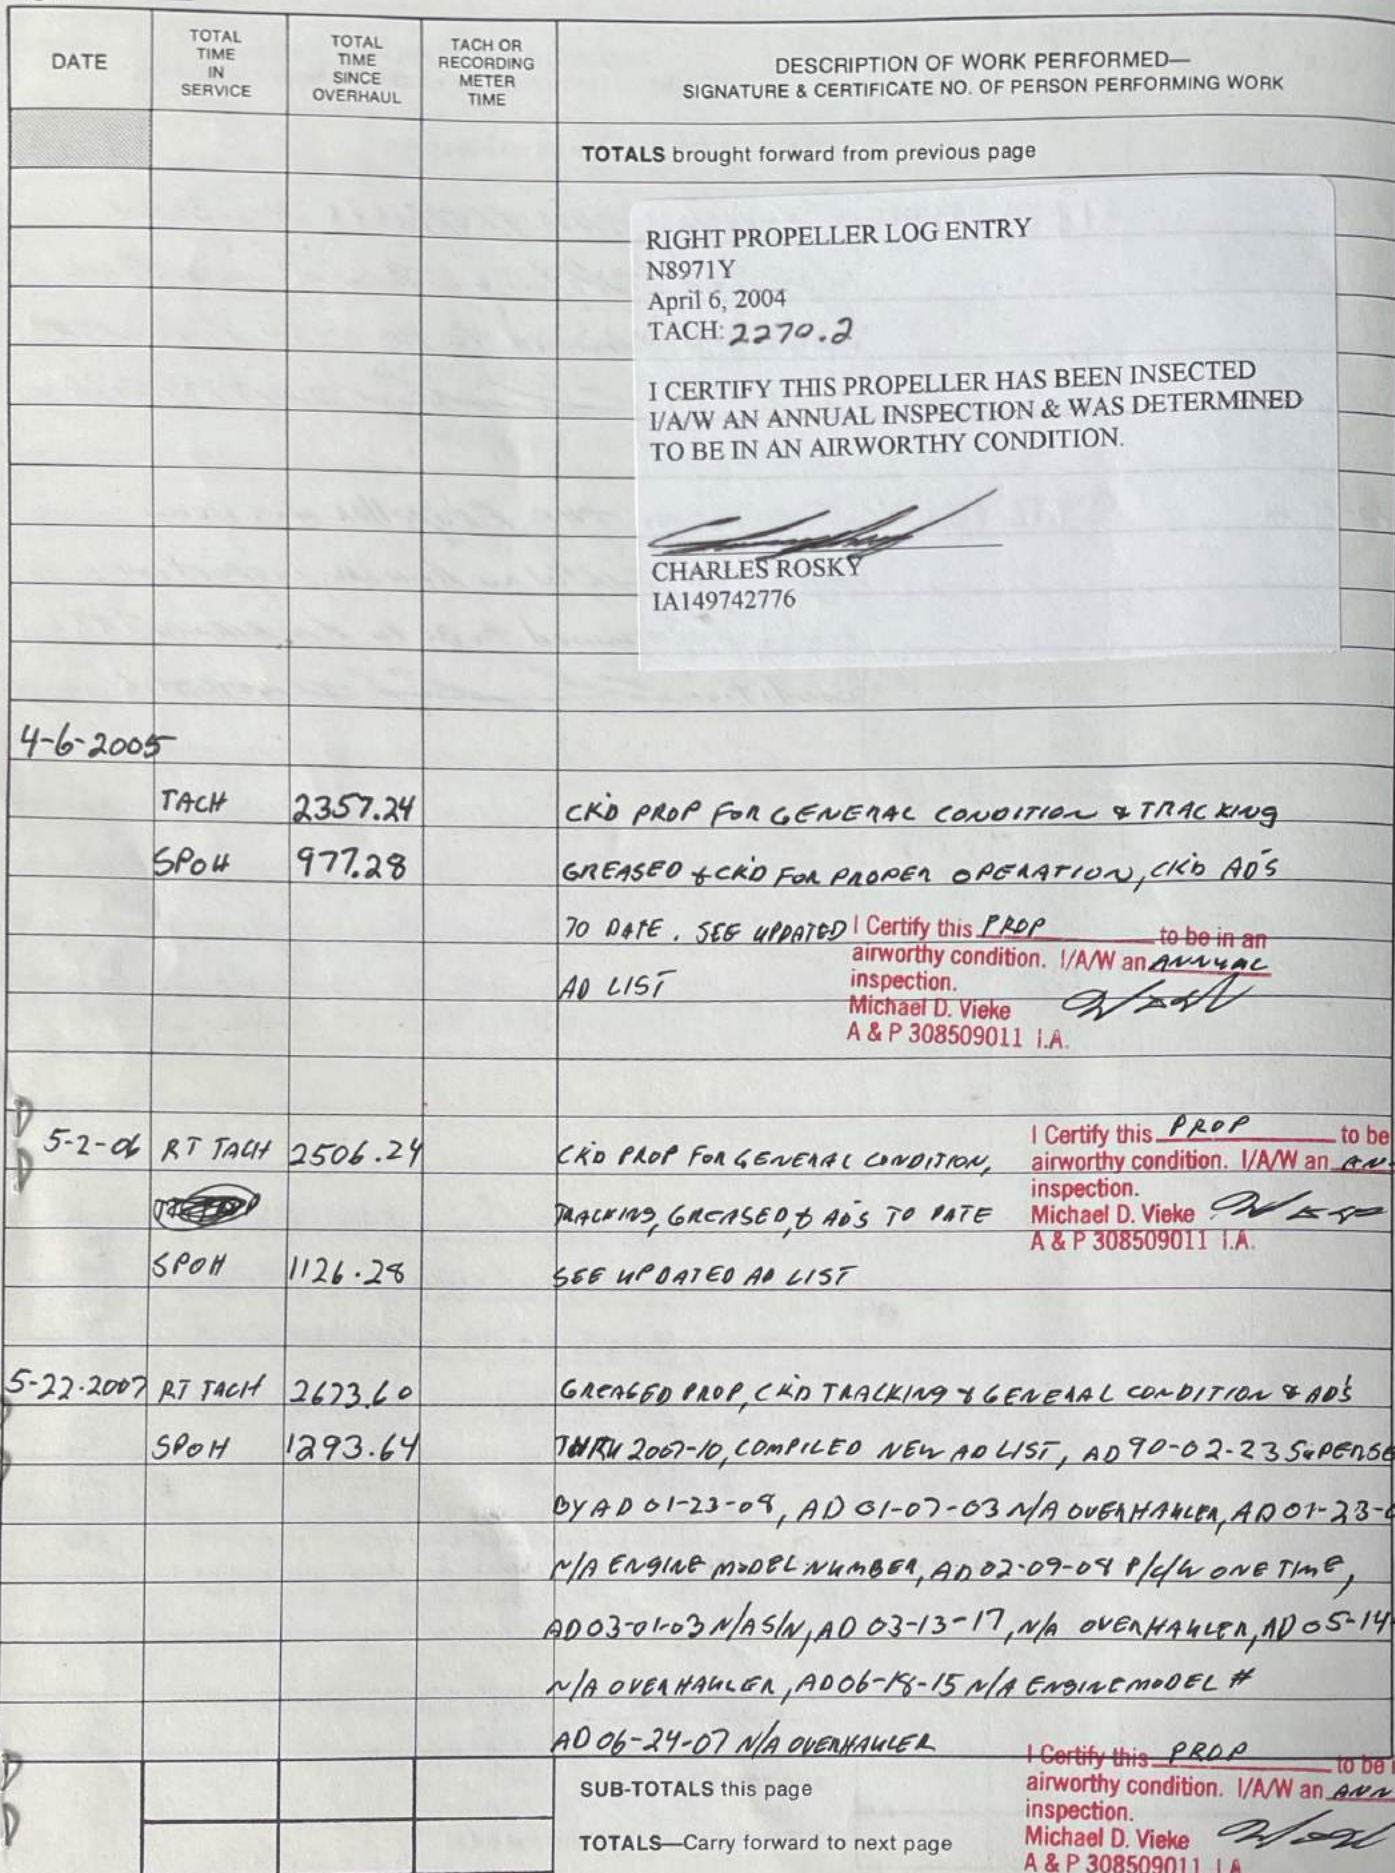 DATE
TOTAL TIME IN SERVICE
TOTAL TIME SINCE OVERHAUL
TACH OR RECORDING METER TIME
DESCRIPTION OF WORK PERFORMED—
SIGNATURE & CERTIFICATE NO. OF PERSON PERFORMING WORK
TOTALS brought forward from previous page
RIGHT PROPELLER LOG ENTRY
N8971Y
April 6, 2004
TACH: 2270.2
I CERTIFY THIS PROPELLER HAS BEEN INSECTED
I/A/W AN ANNUAL INSPECTION & WAS DETERMINED
TO BE IN AN AIRWORTHY CONDITION.
CHARLES ROSKY
IA149742776
4-6-2005
TACH 2357.24 CKD PROP FOR GENERAL CONDITION & TRACKING
SPOH 977.28 GREASED & CKD FOR PROPER OPERATION, CKD AD'S
TO DATE. SEE UPDATED
AD LIST
I Certify this PROP to be in an
airworthy condition. I/A/W an ANNUAL
inspection.
Michael D. Vieke
A & P 308509011 I.A.
5-2-06 RT TACH 2506.24 CKD PROP FOR GENERAL CONDITION,
TRACKING, GREASED, & AD'S TO DATE
SPOH 1126.28 SEE UPDATED AD LIST
I Certify this PROP to be
airworthy condition. I/A/W an AN
inspection.
Michael D. Vieke
A & P 308509011 I.A.
5-22-2007 RT TACH 2673.60 GREASED PROP, CKD TRACKING & GENERAL CONDITION & AD'S
SPOH 1293.64 THRU 2007-10, COMPILED NEW AD LIST, AD 90-02-23 SUPERSE
BY AD 01-23-08, AD 01-07-03 N/A OVERHAULER, AD 01-23-
N/A ENGINE MODEL NUMBER, AD 02-09-08 P/C/W ONE TIME,
AD 03-01-03 N/A S/N, AD 03-13-17, N/A OVERHAULER, AD 05-14-
N/A OVERHAULER, AD 06-18-15 N/A ENGINE MODEL #
AD 06-24-07 N/A OVERHAULER
I Certify this PROP to be
airworthy condition. I/A/W an ANN
inspection.
Michael D. Vieke
A & P 308509011 I.A.
SUB-TOTALS this page
TOTALS—Carry forward to next page